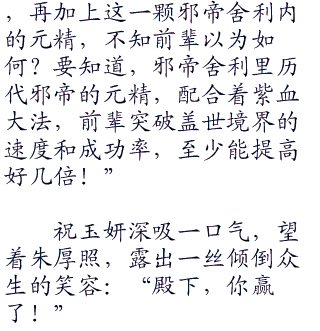 ，再加上这一颗邪帝舍利内
的元精，不知前辈以为如
何？要知道，邪帝舍利里历
代邪帝的元精，配合着紫血
大法，前辈突破盖世境界的
速度和成功率，至少能提高
好几倍！”
祝玉妍深吸一口气，望
着朱厚照，露出一丝倾倒众
生的笑容：“殿下，你赢
了！”